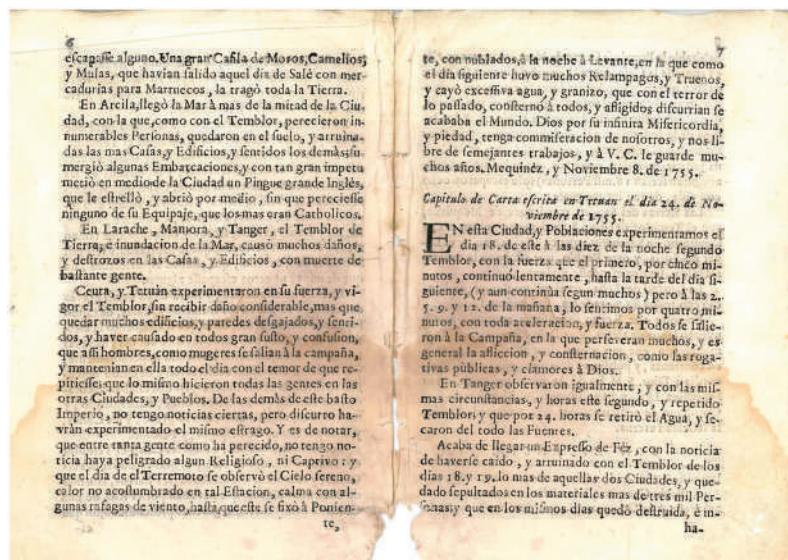 6
escapasse alguno. Una gran Cafila de Moros, Camellos,
y Mulas, que havian salido aquel dia de Salè con mer-
cadurias para Marruecos, la tragò toda la Tierra.
En Arcila, llegò la Mar à mas de la mitad de la Ciu-
dad, con la que, como con el Temblor, perecieron in-
numerables Personas, quedaron en el suelo, y arruina-
das las mas Casas, y Edificios, y sentidos los demàs: su-
mergiò algunas Embarcaciones, y con tan gran impetu
metiò en medio de la Ciudad un Pingue grande Inglès,
que le estrellò, y abriò por medio, sin que pereciesse
ninguno de su Equipaje, que los mas eran Catholicos.
En Larache, Mamora, y Tanger, el Temblor de
Tierra, è inundacion de la Mar, causò muchos daños,
y destrozos en las Casas, y Edificios, con muerte de
bastante gente.
Ceuta, y Tetuàn experimentaron en su fuerza, y vi-
gor el Temblor, sin recibir daño considerable, mas que
quedar muchos edificios, y paredes desgajados, y senti-
dos, y haver causado en todos gran susto, y confusion,
que assi hombres, como mugeres se salian à la campaña,
y mantenian en ella todo el dia con el temor de que re-
pitiesse: que lo mismo hicieron todas las gentes en las
otras Ciudades, y Pueblos. De las demàs de este basto
Imperio, no tengo noticias ciertas, pero discurro ha-
vràn experimentado el mismo estrago. Y es de notar,
que entre tanta gente como ha perecido, no tengo no-
ticia haya peligrado algun Religioso, ni Captivo: y
que el dia de el Terremoto se observò el Cielo sereno,
calor no acostumbrado en tal Estacion, calma con al-
gunas rafagas de viento, hasta que este se fixò à Ponien-
te,
7
te, con nublados, à la noche à Levante, en la que como
el dia siguiente huvo muchos Relampagos, y Truenos,
y cayò excessiva agua, y granizo, que con el terror de
lo passado, consternò à todos, y afligidos discurrian se
acababa el Mundo. Dios por su infinita Misericordia,
y piedad, tenga commiseracion de nosotros, y nos li-
bre de semejantes trabajos, y à V. C. le guarde mu-
chos años. Mequinèz, y Noviembre 8. de 1755.
Capitulo de Carta escrita en Tetuan el dia 24. de No-
viembre de 1755.
EN esta Ciudad, y Poblaciones experimentamos el
dia 18. de este à las diez de la noche segundo
Temblor, con la fuerza que el primero, por cinco mi-
nutos, continuò lentamente, hasta la tarde del dia si-
guiente, (y aun continùa segun muchos) pero à las 2.
5. 9. y 12. de la mañana, lo sentimos por quatro mi-
nutos, con toda aceleracion, y fuerza. Todos se salie-
ron à la Campaña, en la que perseveran muchos, y es
general la afliccion, y consternacion, como las roga-
tivas pùblicas, y clamores à Dios.
En Tanger observaron igualmente, y con las mis-
mas circunstancias, y horas este segundo, y repetido
Temblor; y que por 24. horas se retirò el Agua, y se-
caron del todo las Fuentes.
Acaba de llegar un Expresso de Fèz, con la noticia
de haverse caido, y arruinado con el Temblor de los
dias 18. y 19. lo mas de aquellas dos Ciudades, y que-
dado sepultados en los materiales mas de tres mil Per-
sonas; y que en los mismos dias quedò destruida, è in-
ha-